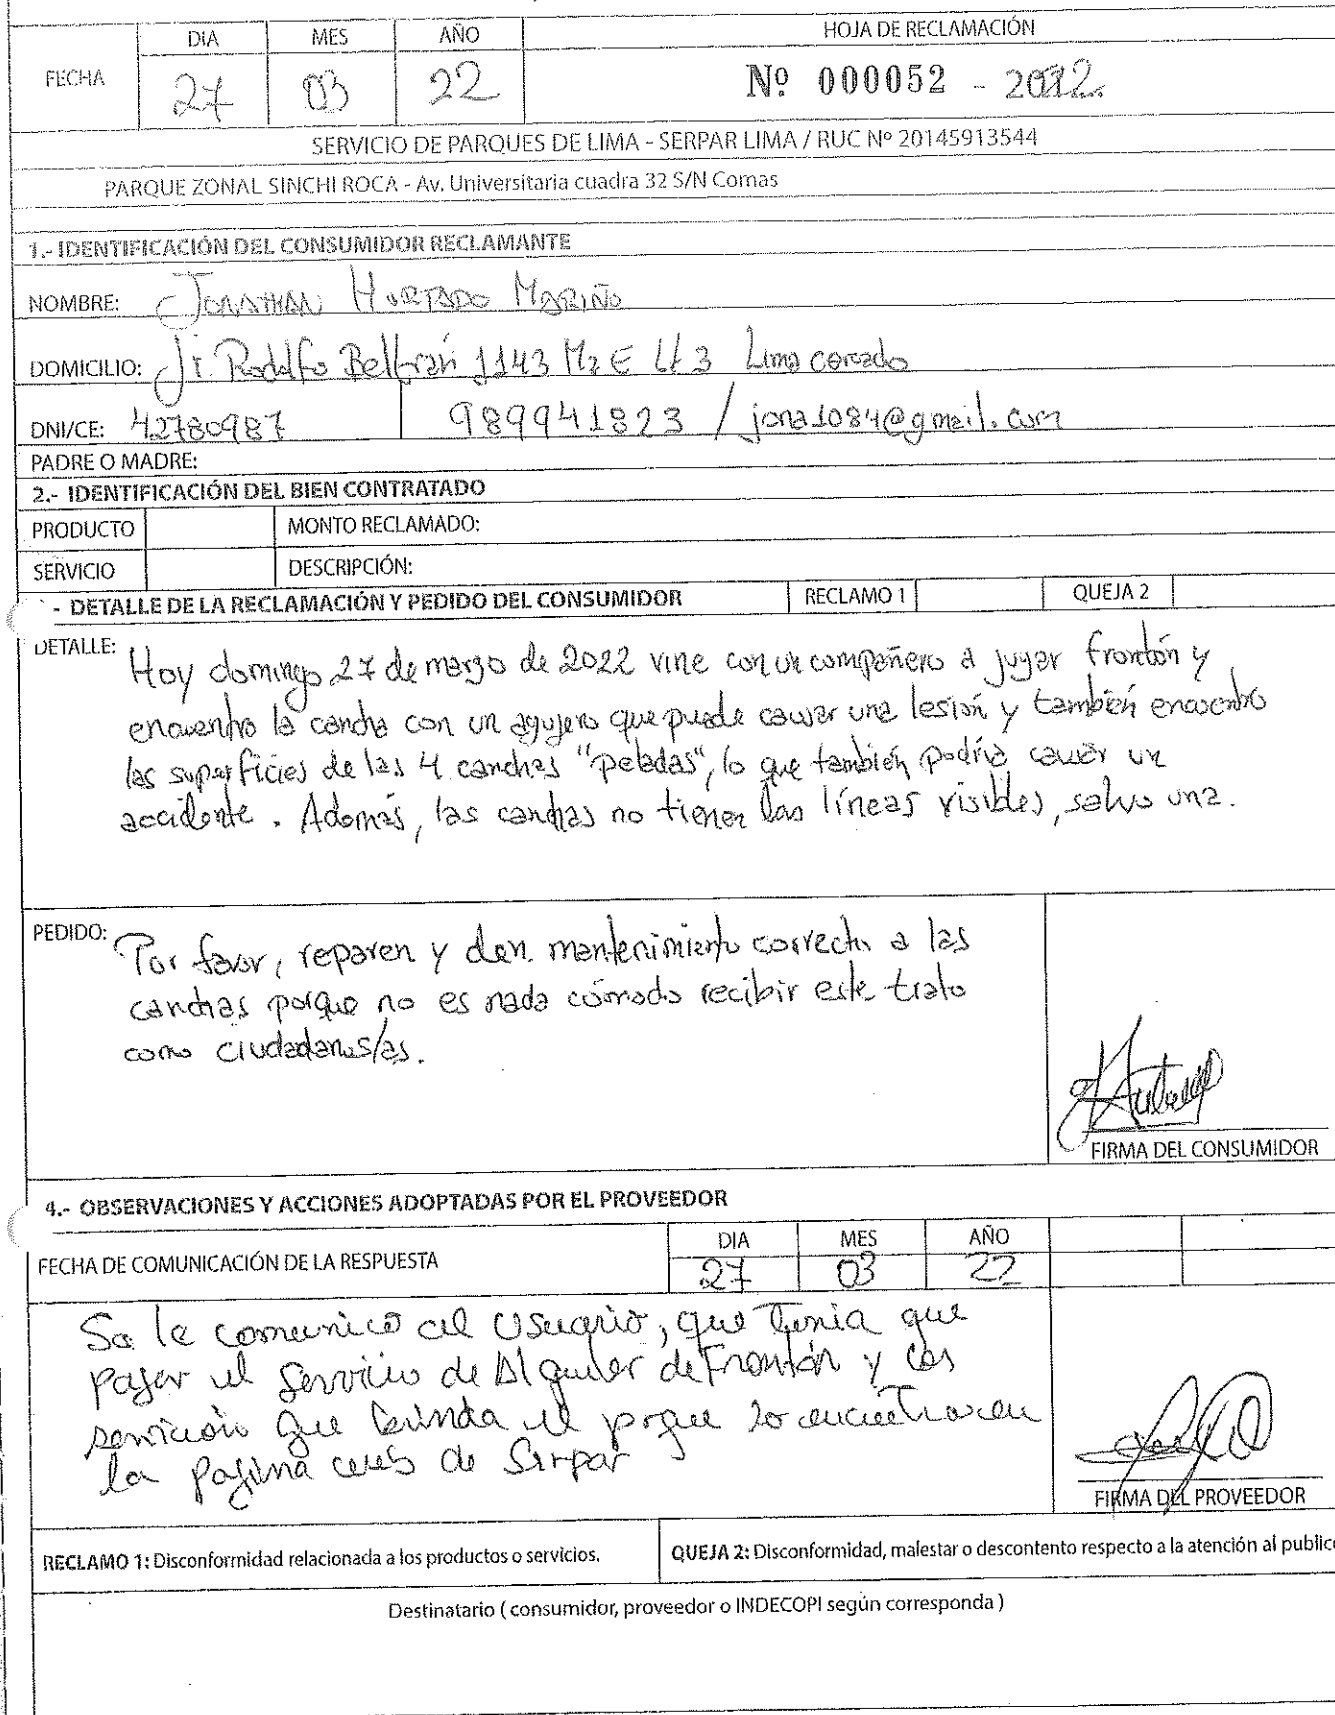 DIA MES AÑO HOJA DE RECLAMACIÓN
FECHA 27 03 22 Nº 000052 - 2022
SERVICIO DE PARQUES DE LIMA - SERPAR LIMA / RUC Nº 20145913544
PARQUE ZONAL SINCHI ROCA - Av. Universitaria cuadra 32 S/N Comas
1.- IDENTIFICACIÓN DEL CONSUMIDOR RECLAMANTE
NOMBRE: JONATHAN HURTADO MARIÑO
DOMICILIO: Jr. Rodolfo Beltrán 1143 Mz E Lt 3 Lima cercado
DNI/CE: 42780987 989941823 / jona1084@gmail.com
PADRE O MADRE:
2.- IDENTIFICACIÓN DEL BIEN CONTRATADO
PRODUCTO MONTO RECLAMADO:
SERVICIO DESCRIPCIÓN:
- DETALLE DE LA RECLAMACIÓN Y PEDIDO DEL CONSUMIDOR RECLAMO 1 QUEJA 2
DETALLE: Hoy domingo 27 de marzo de 2022 vine con un compañero a jugar frontón y
encuentro la cancha con un agujero que puede causar una lesión y también encuentro
las superficies de las 4 canchas "peladas", lo que también podría causar un
accidente. Además, las canchas no tienen las líneas visibles, salvo una.
PEDIDO: Por favor, reparen y den mantenimiento correcto a las
canchas porque no es nada cómodo recibir este trato
como ciudadanos/as.
FIRMA DEL CONSUMIDOR
4.- OBSERVACIONES Y ACCIONES ADOPTADAS POR EL PROVEEDOR
DIA MES AÑO
FECHA DE COMUNICACIÓN DE LA RESPUESTA 27 03 22
Se le comunico al Usuario, que tenia que
pagar el servicio de Alquiler de Frontón y los
servicios que brinda el parque lo encuentra en
la pagina web de Serpar
FIRMA DEL PROVEEDOR
RECLAMO 1: Disconformidad relacionada a los productos o servicios. QUEJA 2: Disconformidad, malestar o descontento respecto a la atención al publico
Destinatario ( consumidor, proveedor o INDECOPI según corresponda )